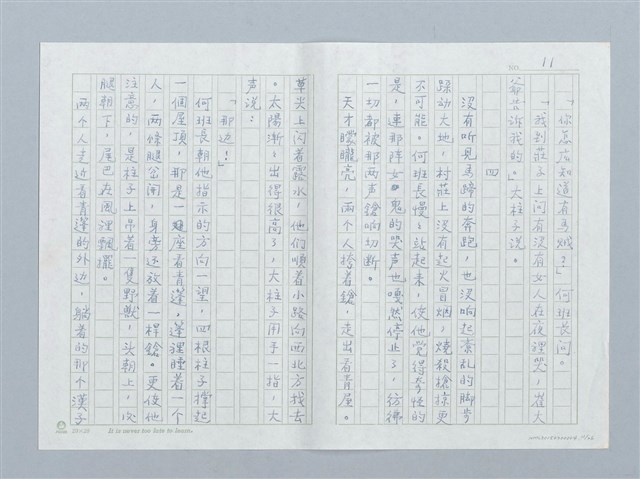 NO. 11
「你怎麽知道有馬賊？」何班長问。
「我到莊子上问有沒有女人在夜裡哭，崔大
爺告诉我的。」大柱子说。
四
沒有听見馬蹄的奔跑，也沒响起紊乱的脚步
踩动大地，村莊上沒有起火冒烟；燒殺搶掠更
不可能。何班長慢慢站起来，使他覚得奇怪的
是，連那阵女鬼的哭声也嘎然停止了，彷彿
一切都被那两声鎗响切断。
天才矇矓亮，兩个人挎着鎗，走出看青屋。
草尖上闪着露水，他们順着小路向西北方找去
。太陽漸漸出得很高了，大柱子用手一指，大
声说：
「那边！」
何班長朝他指示的方向一望，四根柱子撑起
一個屋頂，那是一座看青蓬，蓬裡睡着一个
人，两條腿岔開，身旁还放着一桿鎗。更使他
注意的，是柱子上吊着一隻野獸，头朝上，
腿朝下，尾巴在風裡飄擺。
两个人走近看青蓬的外边，躺着的那个漢子
20×20 It is never too late to learn.